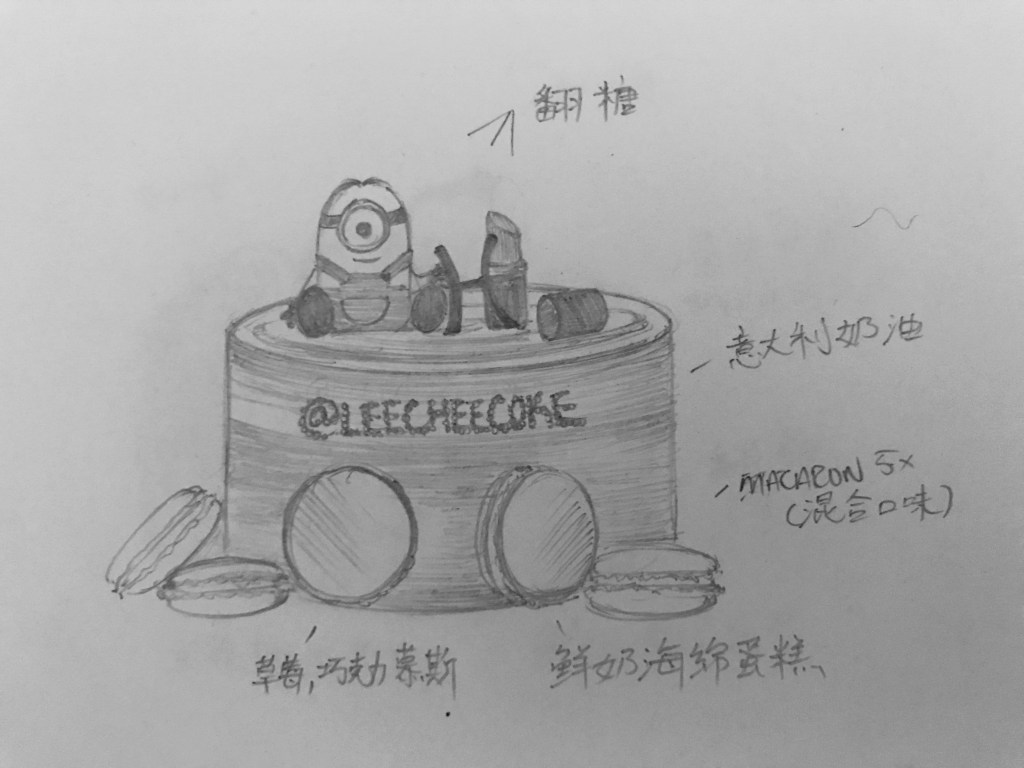 翻糖
意大利奶油
@LEECHEECOKE
MACARON 5x
(混合口味)
草莓,巧克力慕斯
鲜奶海绵蛋糕